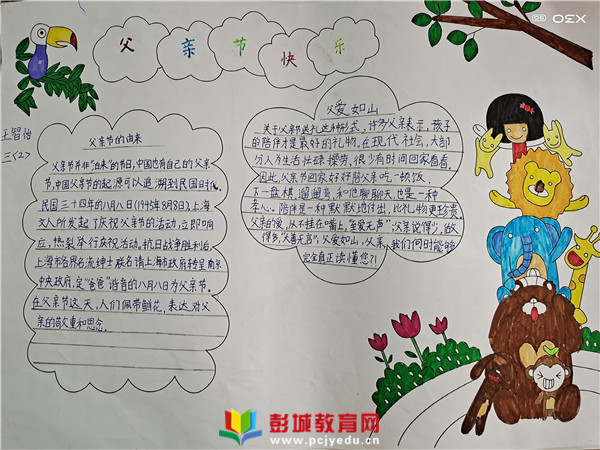 父亲节快乐
王智怡
三<2>
父亲节的由来
父亲节并非"泊来"的节日,中国也有自己的父亲
节,中国父亲节的起源可以追溯到民国时代。
民国三十四年的八月八日(1945年8月8日),上海
文人所发起了庆祝父亲节的活动,立即响
应,热烈举行庆祝活动。抗日战争胜利后,
上海市各界名流绅士联名请上海市政府转呈南京
中央政府,定"爸爸"谐音的八月八日为父亲节。
在父亲节这天,人们佩带鲜花,表达对父
亲的敬重和思念。
父爱如山
关于父亲节送礼这种形式,许多父亲表示,孩子
的陪伴才是最好的礼物,在现代社会,大部
分人为生活忙碌操劳,很少有时间回家看看。
因此,父亲节回家好好陪父亲吃一顿饭、
下一盘棋,遛遛弯,和他聊聊天,也是一种
孝心。陪伴是一种默默地付出,比礼物更珍贵
父亲的爱,从不挂在嘴上,"至爱无声",父圣说得少,做
得多,"父善无言",父爱如山,父亲,我们何时能够
完全真正读懂您?!
彭城教育网
www.pcjyedu.cn
X30